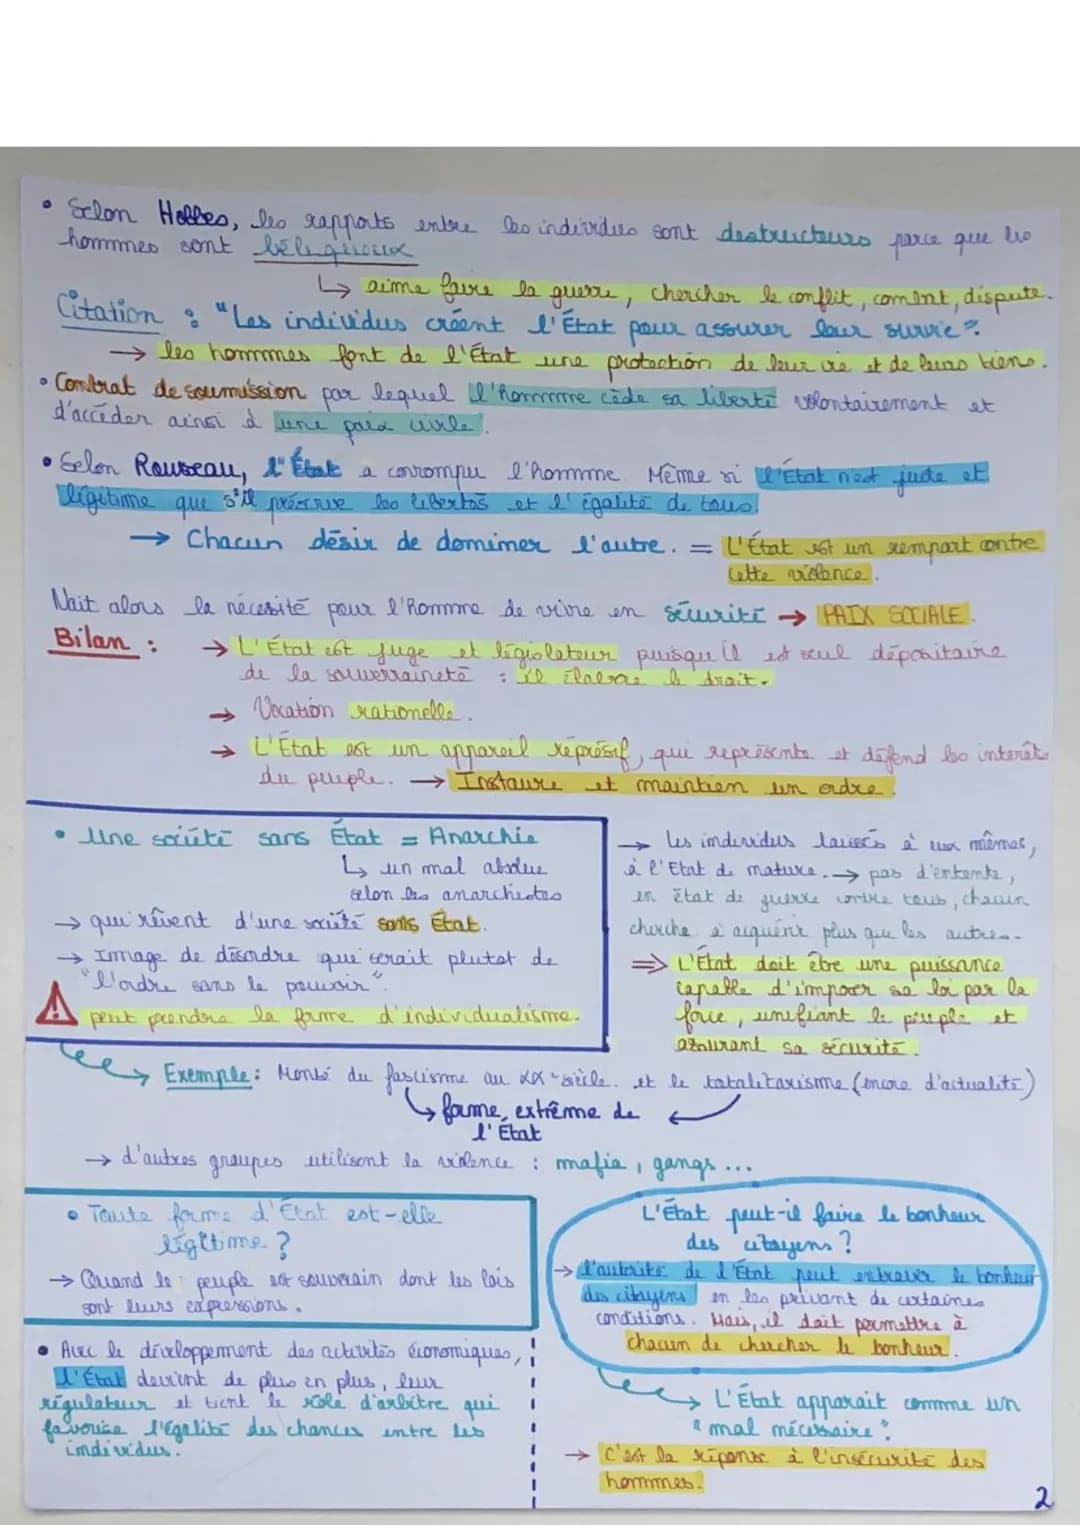 • Selon Hobbes, les rapports entre les individus sont destructeurs parce que les
hommes sont béligueux
↳ aime faire la guerre, chercher le conflit, combat, dispute.
Citation : "Les individus créent l'État pour assurer leur survie".
→ les hommes font de l'État une protection de leur vie et de leurs biens.
• Contrat de soumission par lequel l'homme cède sa liberté volontairement et
d'accéder ainsi à une paix civile.
• Selon Rousseau, l'État a corrompu l'homme. Même si l'État n'est juste et
légitime que s'il préserve les libertés et l'égalité de tous.
→ Chacun désir de dominer l'autre. = L'État est un rempart contre
cette violence.
Nait alors la nécessité pour l'homme de vivre en sécurité → PAIX SOCIALE.
Bilan : → L'État est juge et législateur puisqu'il est seul dépositaire
de la souverraineté : il élabore le droit.
→ Vocation rationelle.
→ L'État est un appareil répressif, qui représente et défend les intérêts
du peuple. → Instaure et maintien un ordre.
• Une société sans État = Anarchie
↳ un mal absolue
selon les anarchistes
→ qui rêvent d'une société sans État.
→ Image de désordre qui serait plutot de
"l'ordre sans le pouvoir".
⚠ peut prendre la forme d'individualisme.
→ Les individus laissés à eux mêmes,
à l'Etat de nature. → pas d'entente,
en état de guerre contre tous, chacun
cherche à acquérir plus que les autres.
⇒ L'État doit être une puissance
capable d'imposer sa loi par la
force, unifiant le peuple et
assurant sa sécurité.
Exemple : Monté du fascisme au XXe siècle. et le totalitarisme (encore d'actualité)
↳ forme extrême de ←
l'État
→ d'autres groupes utilisent la violence : mafia, gangs...
• Toute forme d'État est-elle
légitime ?
→ Quand le peuple est souverain dont les lois
sont leurs expressions.
L'État peut-il faire le bonheur
des citoyens ?
→ l'autorité de l'État peut entraver le bonheur
des citoyens en les privant de certaines
conditions. Mais, il doit permettre à
chacun de chercher le bonheur.
• Avec le développement des activités économiques,
l'État devient de plus en plus, leur
régulateur et tient le rôle d'arbitre qui
favorise l'égalité des chances entre les
individus.
→ L'État apparait comme un
"mal nécessaire".
→ C'est la réponse à l'insécurité des
hommes.
2